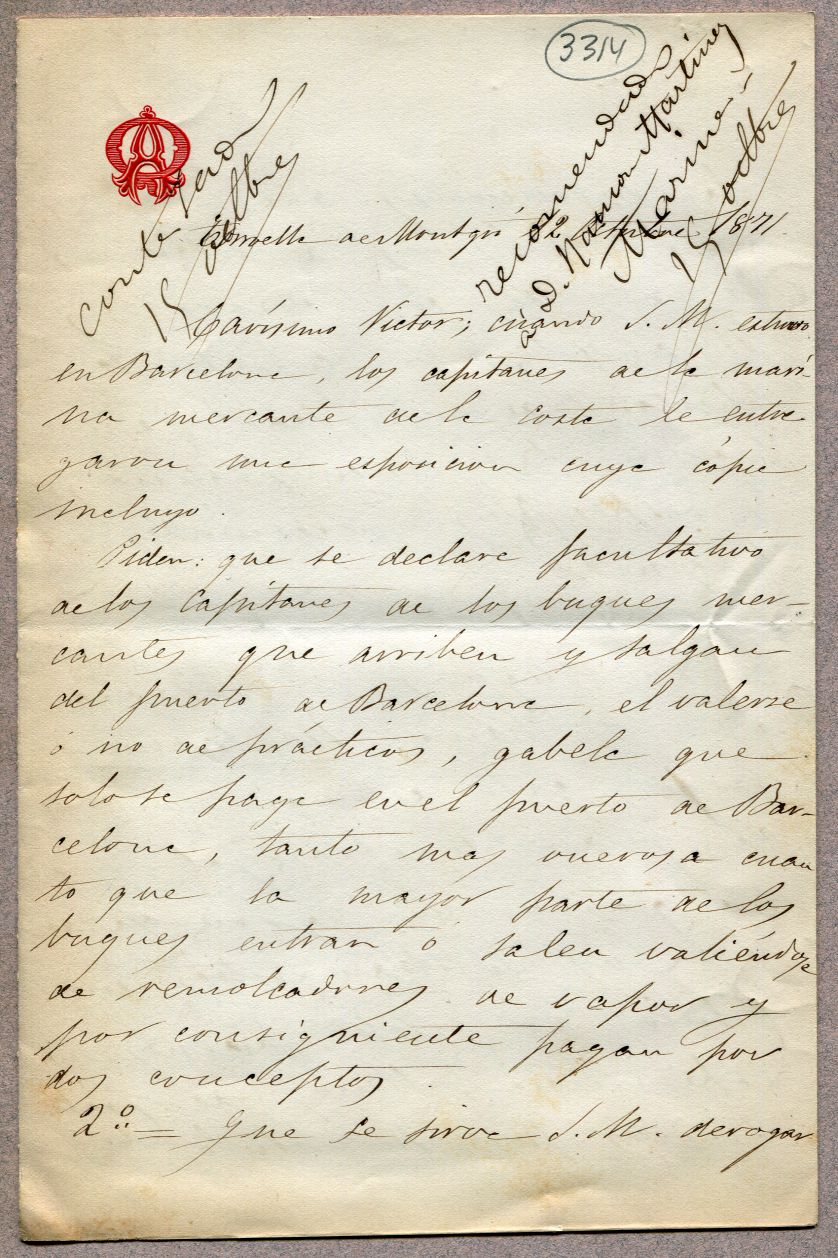 3314
contestad
15 octbre
recomendado
a D. Ramon Martinez
Marina =
15 octbre
Torroella de Montgrí 12 Octubre 1871
Carísimo Victor; cuando S. M. estuvo
en Barcelona, los capitanes de la mari-
na mercante de la costa le entre-
garon una esposicion cuya cópia
incluyo.
Piden: que se declare facultativo
de los Capitanes de los buques mer-
cantes que arriben y salgan
del puerto de Barcelona, el valerse
ó no de prácticos, gabela que
solo se paga en el puerto de Bar-
celona, tanto mas onerosa cuan
to que la mayor parte de los
buques entran ó salen valiéndose
de remolcadores de vapor y
por consiguiente pagan por
dos conceptos.
2º = Que se sirva S. M. derogar